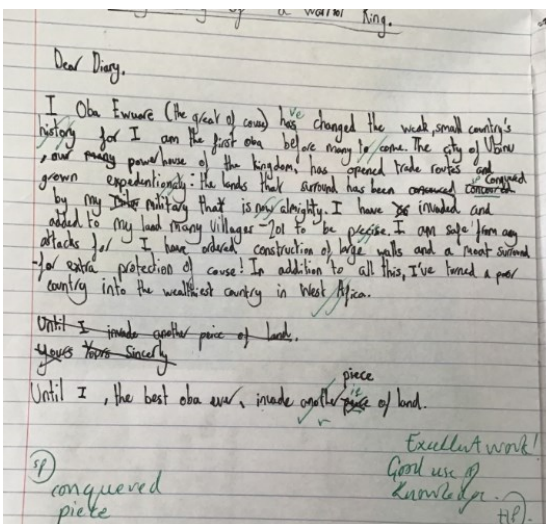 of a warrior King.
Dear Diary,
I Oba Ewuare (the great of couse) has ve changed the weak, small country's
history for I am the first oba before many to come. The city of Ubinu
, our many powerhouse of the kingdom, has opened trade routes and
grown expedentionaly: the lands that surround has been concoured conquered
by my military that is now almighty. I have invaded and
added to my land many villages - 201 to be precise. I am safe from any
attacks for I have ordered construction of large walls and a moat surround
-for extra protection of couse! In addition to all this, I've turned a poor
country into the wealthiest country in West Africa.
Until I invade another peice of land.
Yours Yours Sincerly
piece
Until I, the best oba ever, invade another of land.
Excellent work!
Good use of
knowledge.
HP
sp
conquered
piece